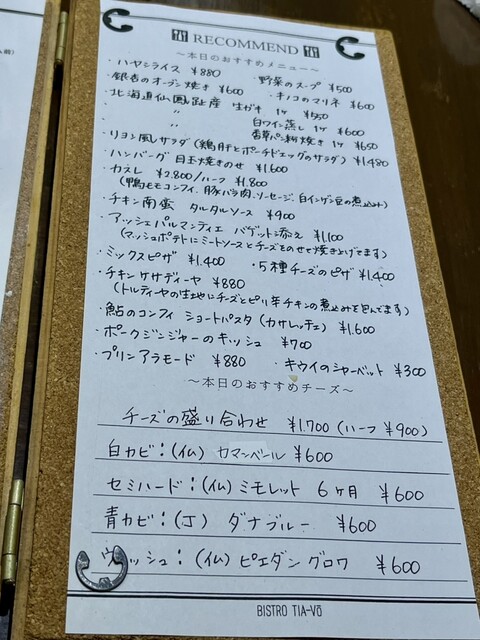 RECOMMEND
〜本日のおすすめメニュー〜
・ハヤシライス ¥880 ・野菜のスープ ¥500
・銀杏のオーブン焼き ¥600 ・キノコのマリネ ¥600
・北海道仙鳳趾産 生ガキ 1ケ ¥550
・ 〃 白ワイン蒸し 1ケ ¥600
・ 〃 香草パン粉焼き 1ケ ¥650
・リヨン風サラダ (鶏肝とポーチドエッグのサラダ) ¥1,480
・ハンバーグ 目玉焼きのせ ¥1,600
・カスレ ¥2,800/ハーフ ¥1,800
(鴨モモコンフィ、豚バラ肉、ソーセージ、白インゲン豆の煮込み)
・チキン南蛮 タルタルソース ¥900
・アッシェパルマンティエ バゲット添え ¥1,100
(マッシュポテトにミートソースとチーズをのせて焼き上げてます)
・ミックスピザ ¥1,400 ・5種チーズのピザ ¥1,400
・チキンケサディーヤ ¥880
(トルティーヤの生地にチーズとピリ辛チキンの煮込みを包んでます)
・鮎のコンフィ ショートパスタ (カサレッチェ) ¥1,600
・ポークジンジャーのキッシュ ¥700
・プリンアラモード ¥880 ・キウイのシャーベット ¥300
〜本日のおすすめチーズ〜
チーズの盛り合わせ ¥1,700 (ハーフ ¥900)
白カビ:(仏) カマンベール ¥600
セミハード:(仏) ミモレット 6ヶ月 ¥600
青カビ:(丁) ダナブルー ¥600
ウォッシュ:(仏) ピエダングロワ ¥600
BISTRO TIA-Võ